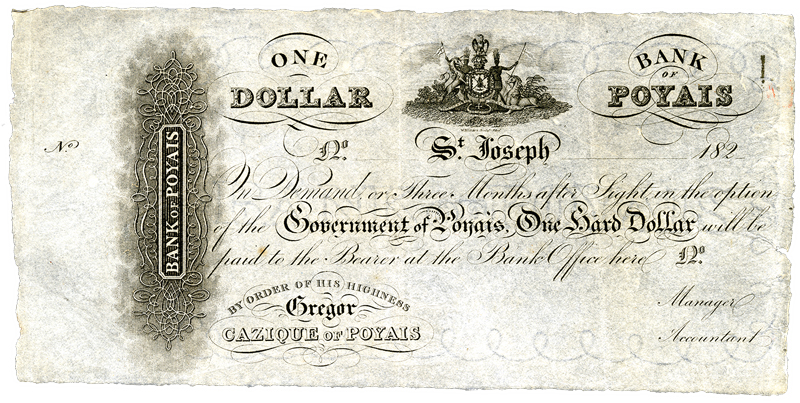 ONE
DOLLAR
BANK
OF
POYAIS
Nº
BANK OF POYAIS
Nº St. Joseph 182
On Demand, or Three Months after Sight in the option
of the Government of Poyais, One Hard Dollar will be
paid to the Bearer at the Bank Office here Nº
BY ORDER OF HIS HIGHNESS
Gregor
CAZIQUE OF POYAIS
Manager
Accountant